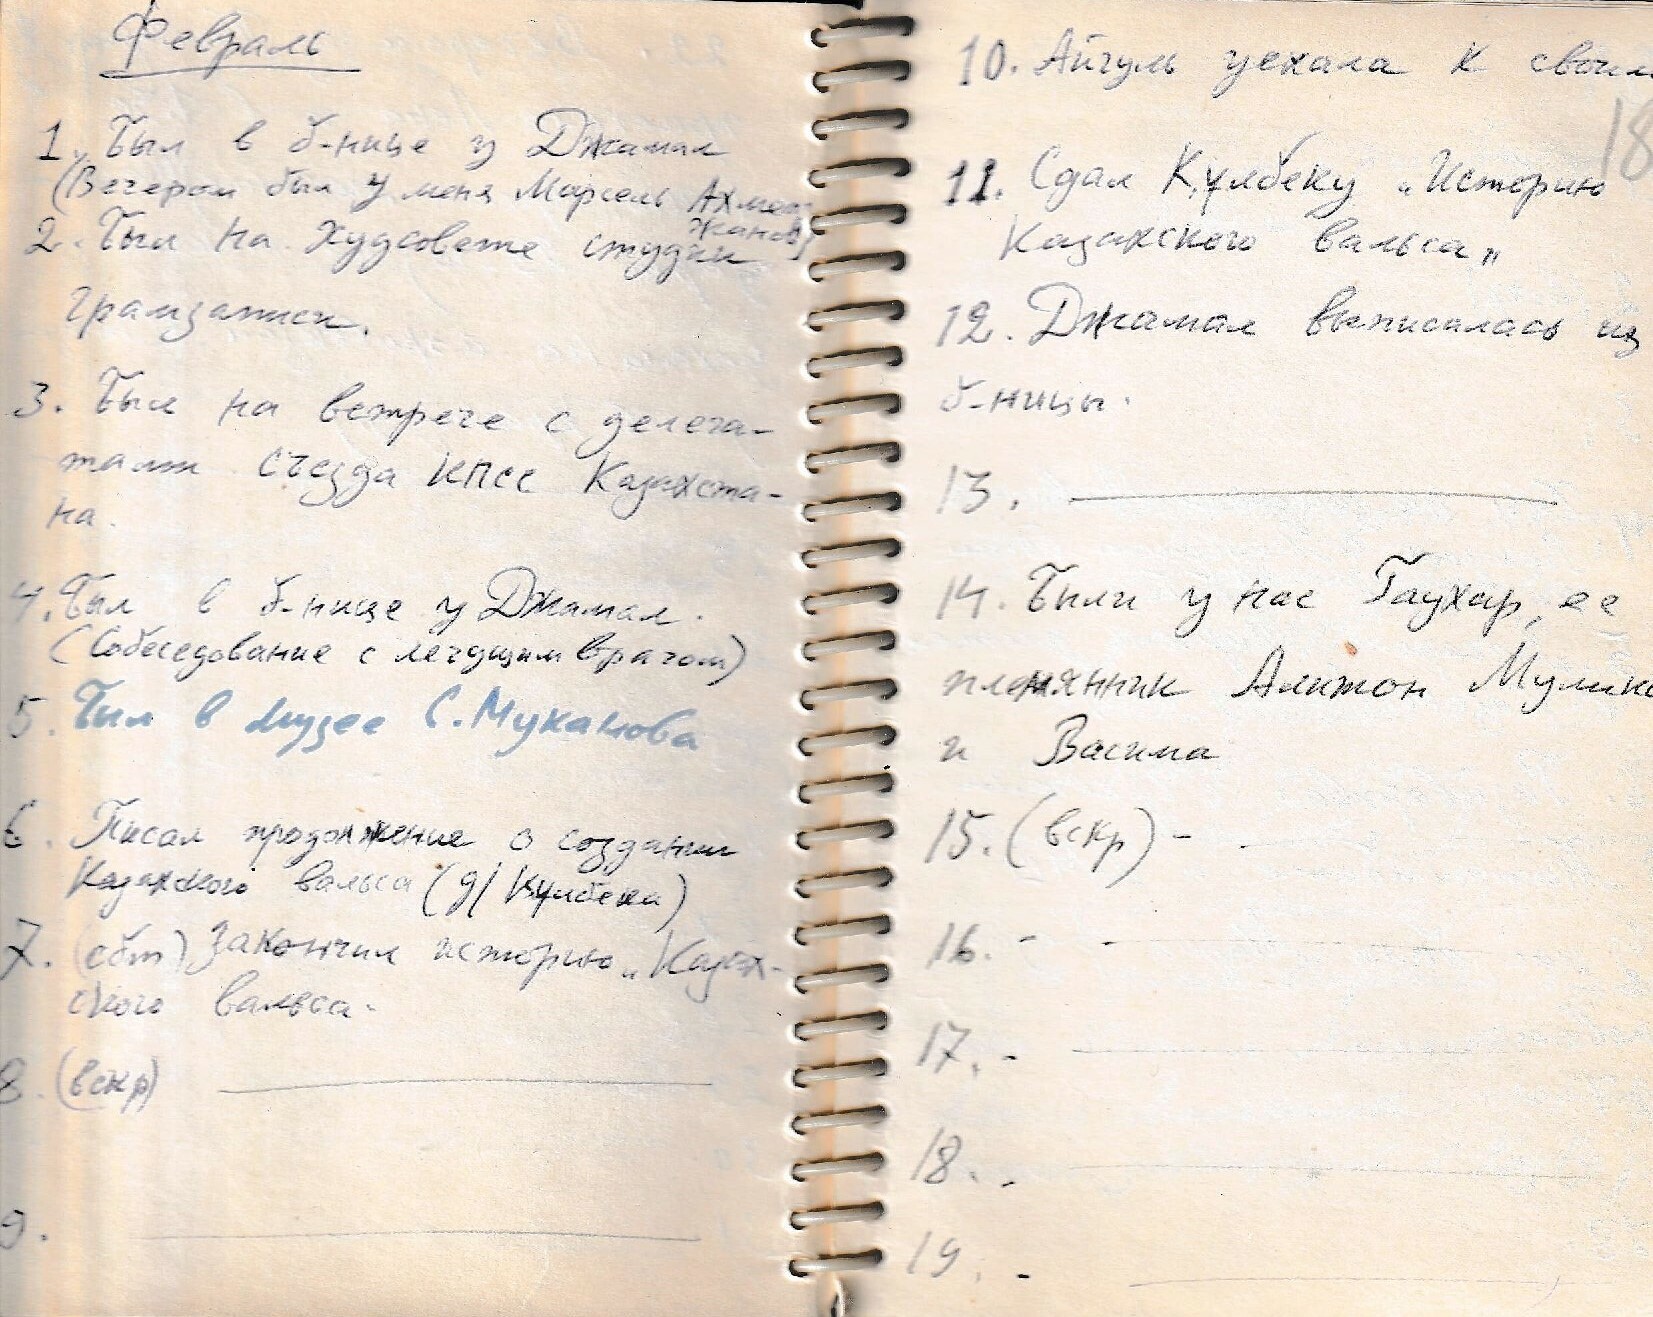 Февраль
1. Был в б-нице у Джамал
(Вечером был у меня Марсель Ахмет-
жанов)
2. Был на худсовете студии
грамзаписи.
3. Был на встрече с делега-
тами съезда КПСС Казахста-
на.
4. Был в б-нице у Джамал.
(Собеседование с лечущим врачом)
5. Был в музее С. Муканова
6. Писал продолжение о создании
Казахского вальса (д/Кулбека)
7. (сбт) Закончил историю „Казах-
ского вальса.
8. (вскр)
9.
10. Айгуль уехала к своим
18
11. Сдал Кулбеку „Историю
Казахского вальса„
12. Джамал выписалась из
б-ницы.
13.
14. Были у нас Гаухар, ее
племянник Алитон
и Васима
15. (вскр) -
16. -
17. -
18. -
19. -